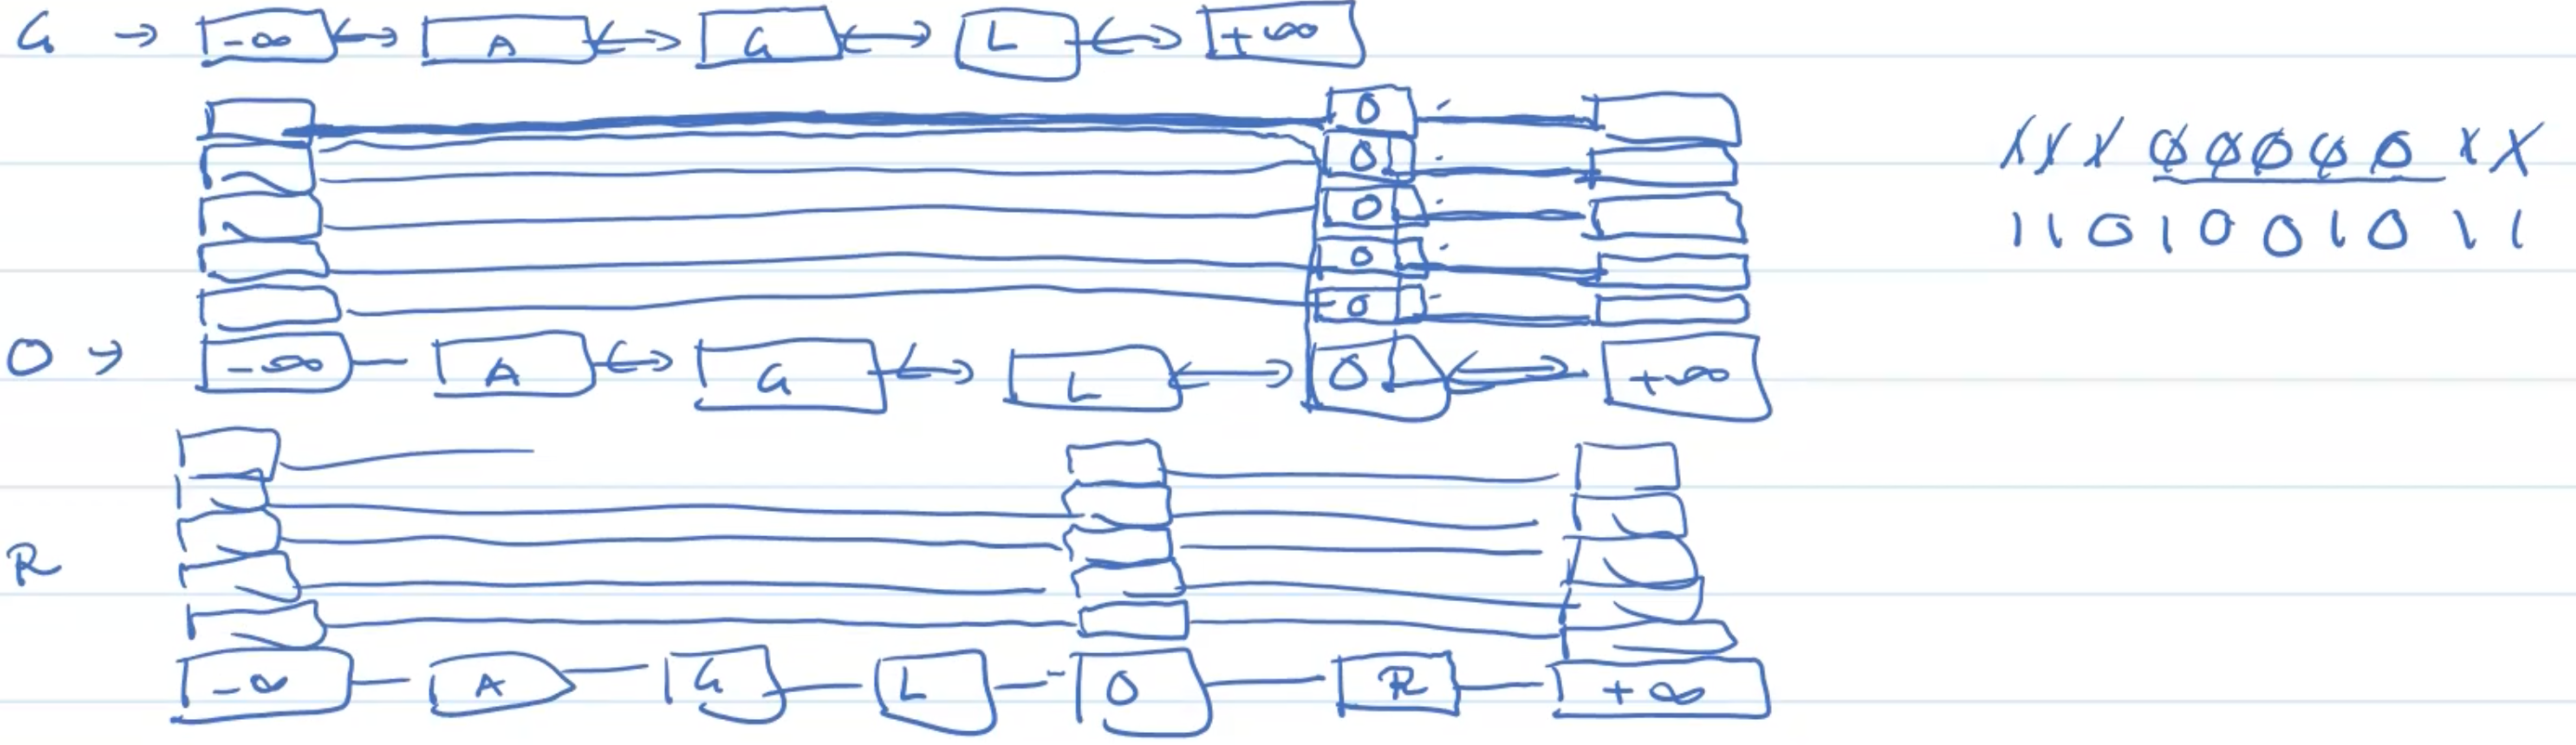 G → -∞ A G L +∞
0
0
0
0
0
O → -∞ A G L O +∞
R
-∞ A G L O R +∞
X X X 0 0 0 0 0 X X
1 1 0 1 0 0 1 0 1 1